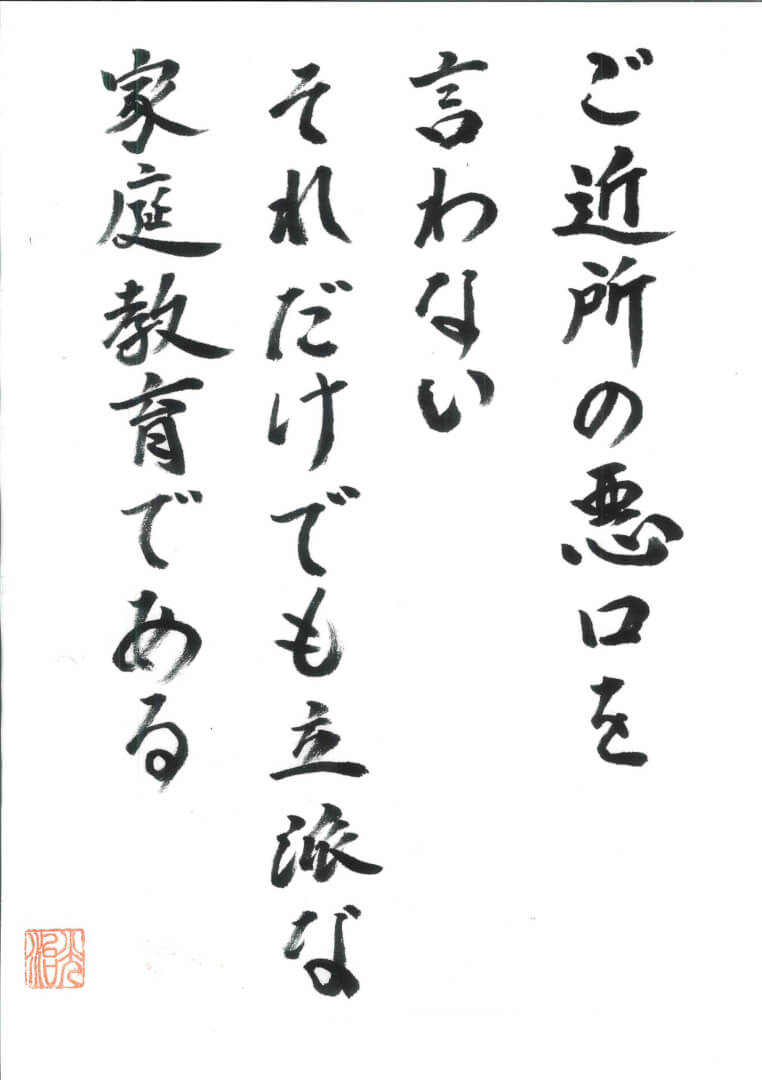 ご近所の悪口を
言わない
それだけでも立派な
家庭教育である